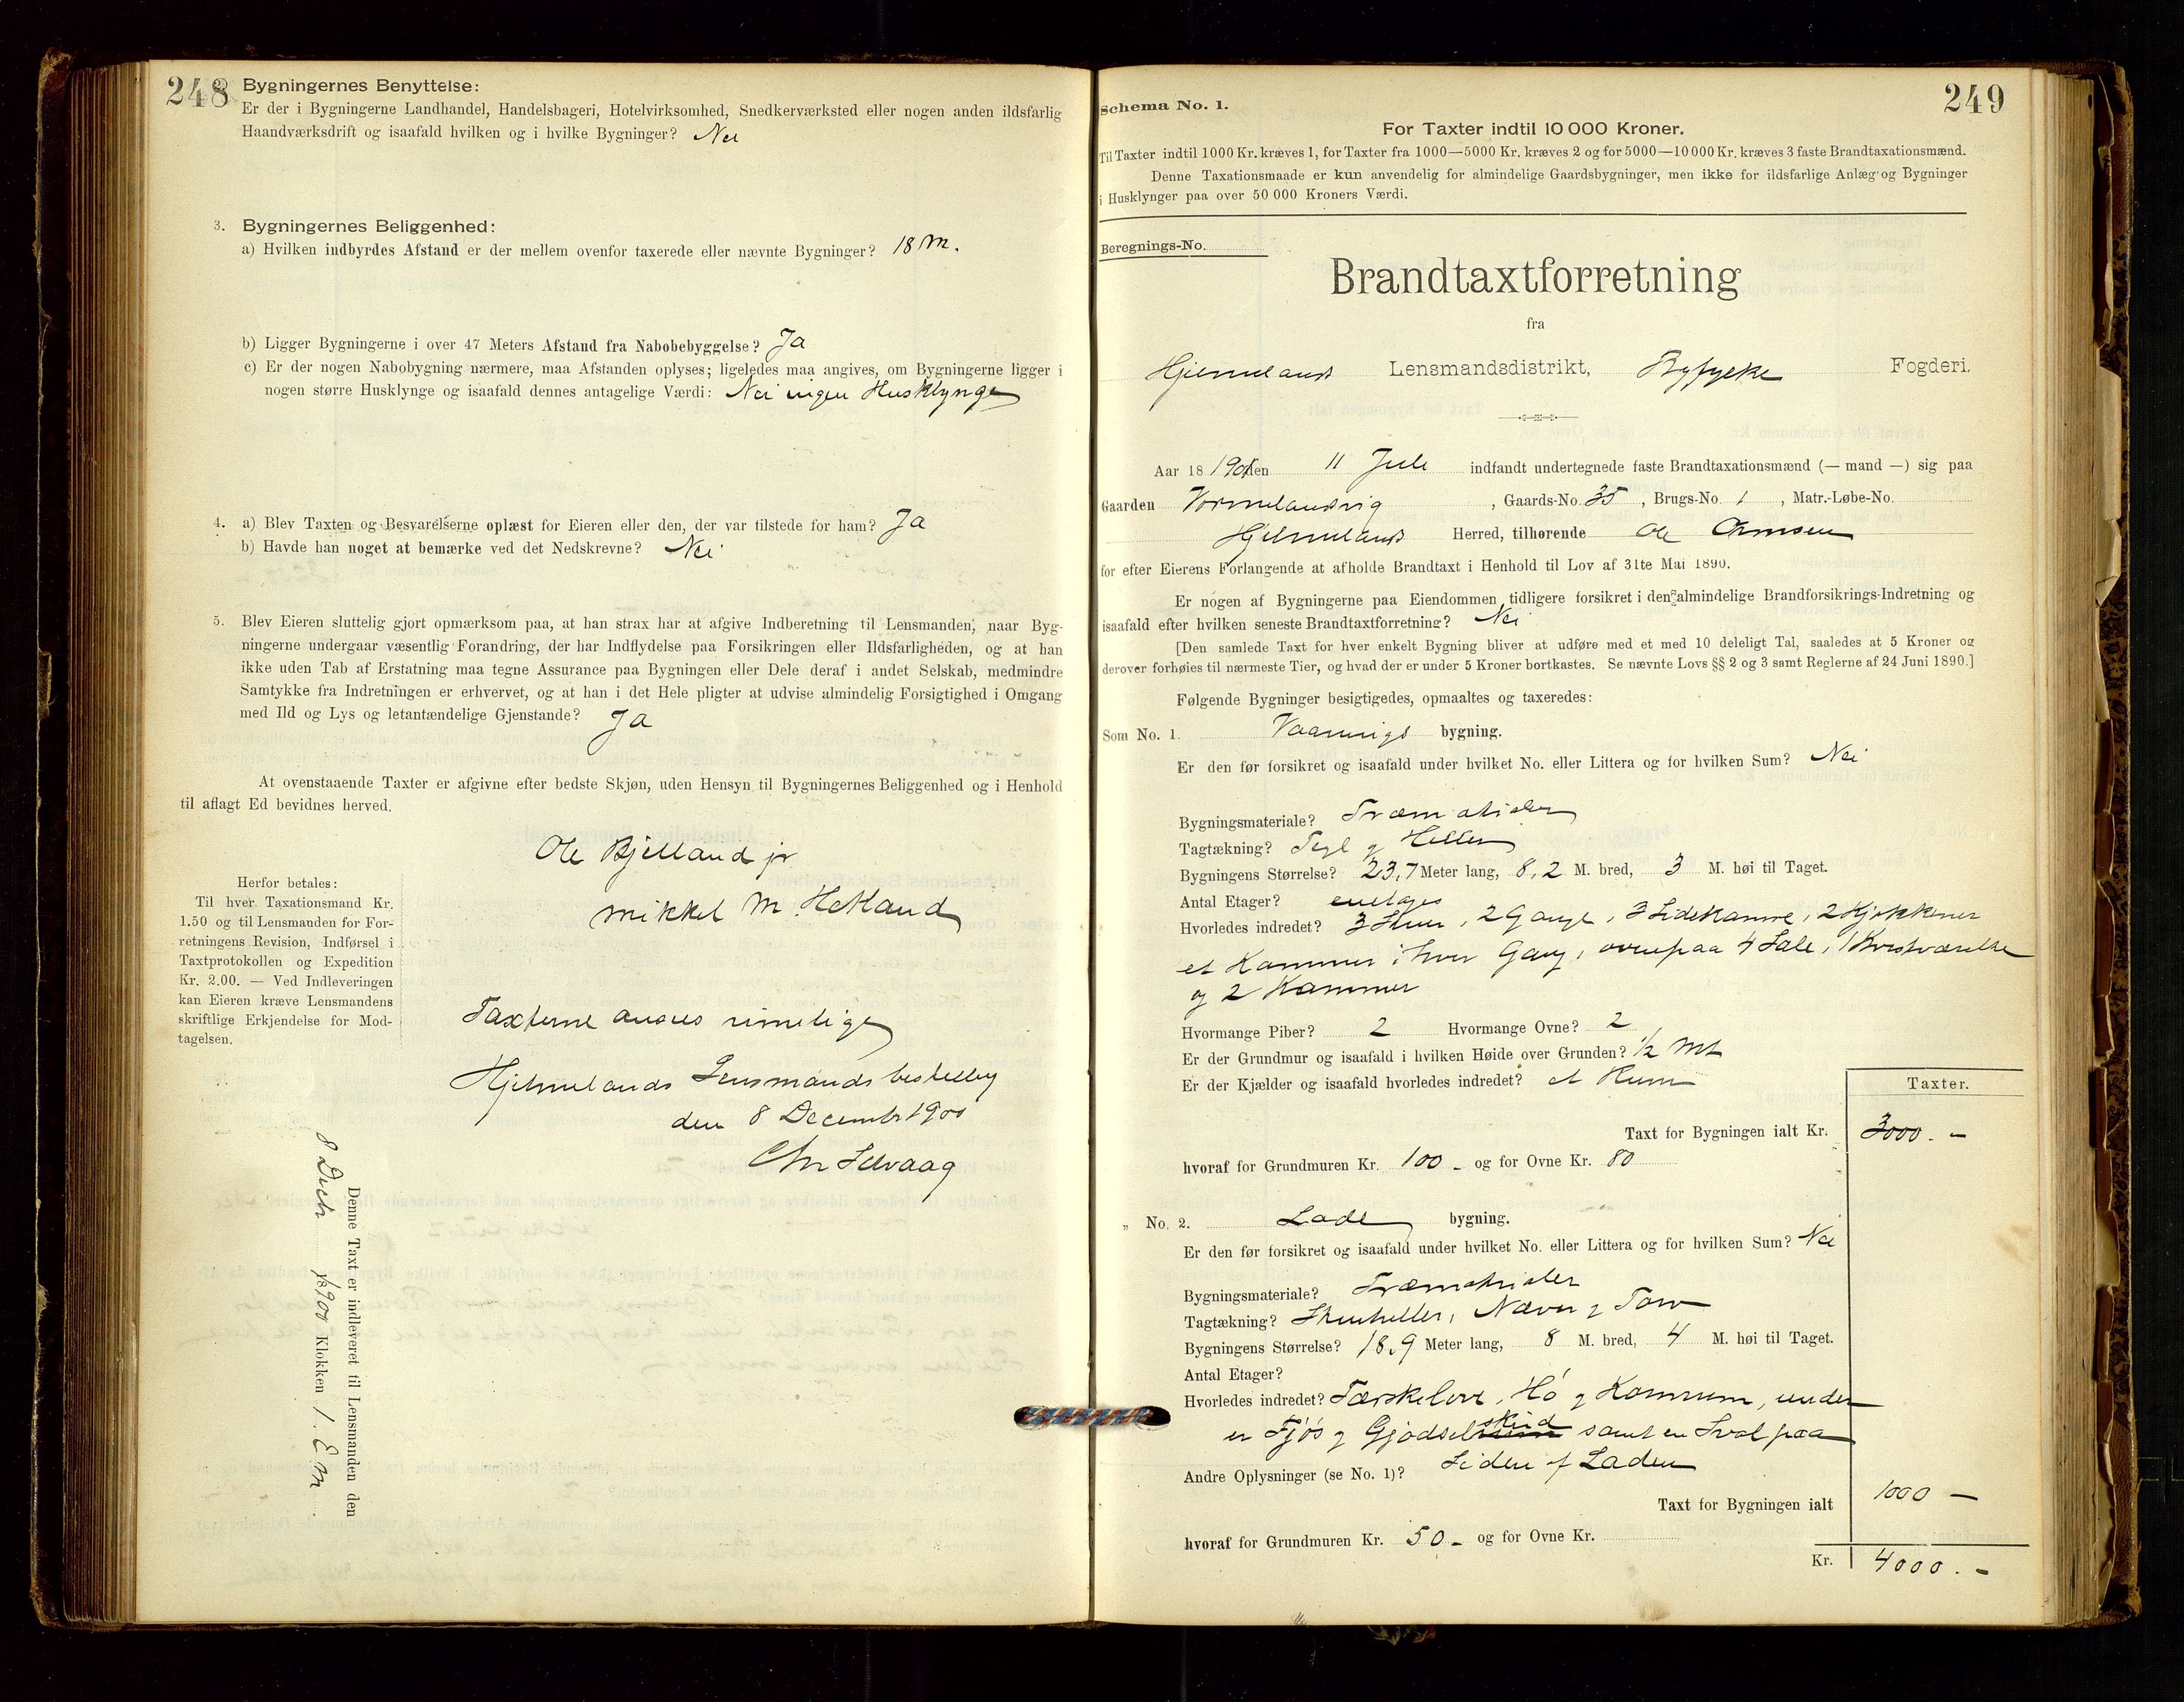 248
Bygningernes Benyttelse:
Er der i Bygningerne Landhandel, Handelsbageri, Hotelvirksomhed, Snedkerværksted eller nogen anden ildsfarlig
Haandværksdrift og isaafald hvilken og i hvilke Bygninger? Nei
3. Bygningernes Beliggenhed:
a) Hvilken indbyrdes Afstand er der mellem ovenfor taxerede eller nævnte Bygninger? 18 M.
b) Ligger Bygningerne i over 47 Meters Afstand fra Nabobebyggelse? Ja
c) Er der nogen Nabobygning nærmere, maa Afstanden oplyses; ligeledes maa angives, om Bygningerne ligger i
nogen større Husklynge og isaafald dennes antagelige Værdi: Nei ingen Husklynge
4. a) Blev Taxten og Besvarelserne oplæst for Eieren eller den, der var tilstede for ham? Ja
b) Havde han noget at bemærke ved det Nedskrevne? Nei
5. Blev Eieren sluttelig gjort opmærksom paa, at han strax har at afgive Indberetning til Lensmanden, naar Byg-
ningerne undergaar væsentlig Forandring, der har Indflydelse paa Forsikringen eller Ildsfarligheden, og at han
ikke uden Tab af Erstatning maa tegne Assurance paa Bygningen eller Dele deraf i andet Selskab, medmindre
Samtykke fra Indretningen er erhvervet, og at han i det Hele pligter at udvise almindelig Forsigtighed i Omgang
med Ild og Lys og letantændelige Gjenstande? Ja
At ovenstaaende Taxter er afgivne efter bedste Skjøn, uden Hensyn til Bygningernes Beliggenhed og i Henhold
til aflagt Ed bevidnes herved.
Ole Bjelland jr
Mikkel M. Hetland
Herfor betales:
Til hver Taxationsmand Kr.
1.50 og til Lensmanden for For-
retningens Revision, Indførsel i
Taxtprotokollen og Expedition
Kr. 2.00. — Ved Indleveringen
kan Eieren kræve Lensmandens
skriftlige Erkjendelse for Mod-
tagelsen.
Taxterne ansees rimelige
Hjelmelands Lensmandsbestilling
den 8 Decembr 1900
Chr Selvaag
Denne Taxt er indleveret til Lensmanden den
8 Decbr 18 1900 Klokken 1. Em
249
Schema No. 1.
For Taxter indtil 10 000 Kroner.
Til Taxter indtil 1000 Kr. kræves 1, for Taxter fra 1000—5000 Kr. kræves 2 og for 5000—10 000 Kr. kræves 3 faste Brandtaxationsmænd.
Denne Taxationsmaade er kun anvendelig for almindelige Gaardsbygninger, men ikke for ildsfarlige Anlæg og Bygninger
i Husklynger paa over 50 000 Kroners Værdi.
Beregnings-No.
Brandtaxtforretning
fra
Hjelmelands Lensmandsdistrikt, Ryfylke Fogderi.
Aar 18 190 den 11 Juli indfandt undertegnede faste Brandtaxationsmænd (— mand —) sig paa
Gaarden Vormelandsvig, Gaards-No. 35, Brugs-No. 1, Matr.-Løbe-No.
Hjelmelands Herred, tilhørende Ole Ormsen
for efter Eierens Forlangende at afholde Brandtaxt i Henhold til Lov af 31te Mai 1890.
Er nogen af Bygningerne paa Eiendommen tidligere forsikret i den almindelige Brandforsikrings-Indretning og
isaafald efter hvilken seneste Brandtaxtforretning? Nei
[Den samlede Taxt for hver enkelt Bygning bliver at udføre med et med 10 deleligt Tal, saaledes at 5 Kroner og
derover forhøies til nærmeste Tier, og hvad der er under 5 Kroner bortkastes. Se nævnte Lovs §§ 2 og 3 samt Reglerne af 24 Juni 1890.]
Følgende Bygninger besigtigedes, opmaaltes og taxeredes:
Som No. 1. Vaanings bygning.
Er den før forsikret og isaafald under hvilket No. eller Littera og for hvilken Sum? Nei
Bygningsmateriale? Træmatrialer
Tagtækning? Tegl g Heller
Bygningens Størrelse? 23,7 Meter lang, 8,2 M. bred, 3 M. høi til Taget.
Antal Etager? enetages
Hvorledes indredet? 3 Stuer, 2 Gange, 3 Sidekamre, 2 Kjøkkener
et Kammer i hver Gang, ovenpaa 4 Sale, 1 Kvistværelse
og 2 Kammer
Hvormange Piber? 2 Hvormange Ovne? 2
Er der Grundmur og isaafald i hvilken Høide over Grunden? 1/2 Mt
Er der Kjælder og isaafald hvorledes indredet? et Rum
Taxter.
Taxt for Bygningen ialt Kr. 3000. -
hvoraf for Grundmuren Kr. 100 - og for Ovne Kr. 80
„ No. 2. Lade bygning.
Er den før forsikret og isaafald under hvilket No. eller Littera og for hvilken Sum? Nei
Bygningsmateriale? Træmatrialer
Tagtækning? Stenheller, Næver g Torv
Bygningens Størrelse? 18,9 Meter lang, 8 M. bred, 4 M. høi til Taget.
Antal Etager?
Hvorledes indredet? Tærskelove, Hó g Kornrum, under
er Fjós g Gjødsel skud samt en Sval paa
Andre Oplysninger (se No. 1)? Siden af Laden
Taxt for Bygningen ialt 1000 -
hvoraf for Grundmuren Kr. 50 - og for Ovne Kr.
Kr. 4000. -